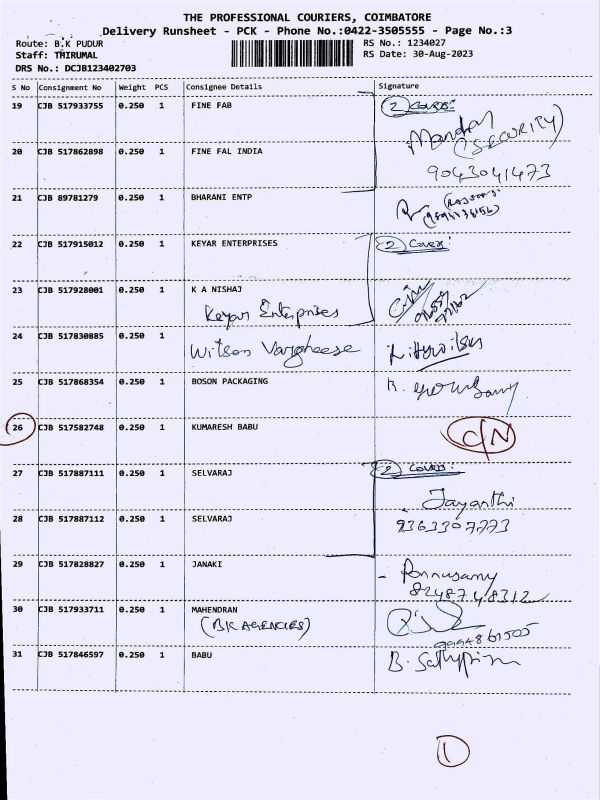 THE PROFESSIONAL COURIERS, COIMBATORE
Delivery Runsheet - PCK - Phone No.:0422-3505555 - Page No.:3
Route: B.K PUDUR
RS No.: 1234027
Staff: THIRUMAL
RS Date: 30-Aug-2023
DRS No.: DCJB123402703
S No Consignment No Weight PCS Consignee Details Signature
19 CJB 517933755 0.250 1 FINE FAB
2 Covers:
(SECURITY)
20 CJB 517862898 0.250 1 FINE FAL INDIA
9043041473
21 CJB 89781279 0.250 1 BHARANI ENTP
22 CJB 517915012 0.250 1 KEYAR ENTERPRISES
2 Cover:
23 CJB 517928001 0.250 1 K A NISHAJ
Keyar Enterprises
24 CJB 517830885 0.250 1
Witson Vargheese
25 CJB 517868354 0.250 1 BOSON PACKAGING
26 CJB 517582748 0.250 1 KUMARESH BABU
C/N
27 CJB 517887111 0.250 1 SELVARAJ
2 Covers:
Jayanthi
28 CJB 517887112 0.250 1 SELVARAJ
9363307773
29 CJB 517828827 0.250 1 JANAKI
- Ponnusamy
8248748312
30 CJB 517933711 0.250 1 MAHENDRAN
(BK AGENCIES)
9994861505
31 CJB 517846597 0.250 1 BABU
1